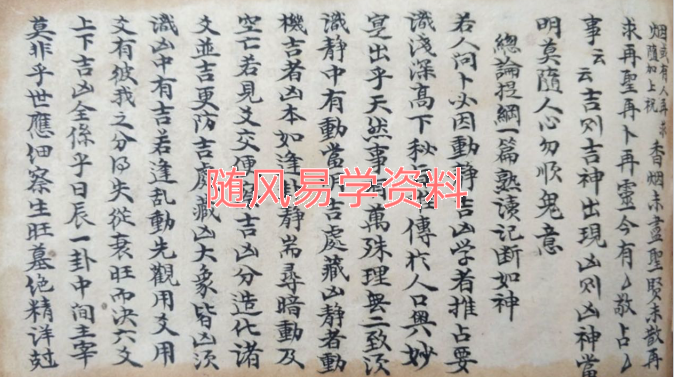 烟或有人再求
隨加上祝
香烟未盡聖賢未散再
求再聖再卜再靈今有敬占
事云云吉则吉神出現凶则凶神當
明莫隨人心勿順鬼意
總論提綱一篇熟讀記断如神
若人问卜必因動靜吉凶学者推占要
識淺深高下秘傳於人口與妙
寔出乎天然事萬殊理無二致须
識靜中有動當吉處藏凶靜者動
機吉者凶本如逢靜耑尋暗動及
空亡若見爻交便吉凶分造化诸
爻並吉更防吉處藏凶大象皆凶须
識凶中有吉若逢乱動先觀用爻用
爻有彼我之分得失從衰旺而决六爻
上下吉凶全係乎日辰一卦中间主宰
莫非乎世應细察生旺墓绝精详尅
随风易学资料